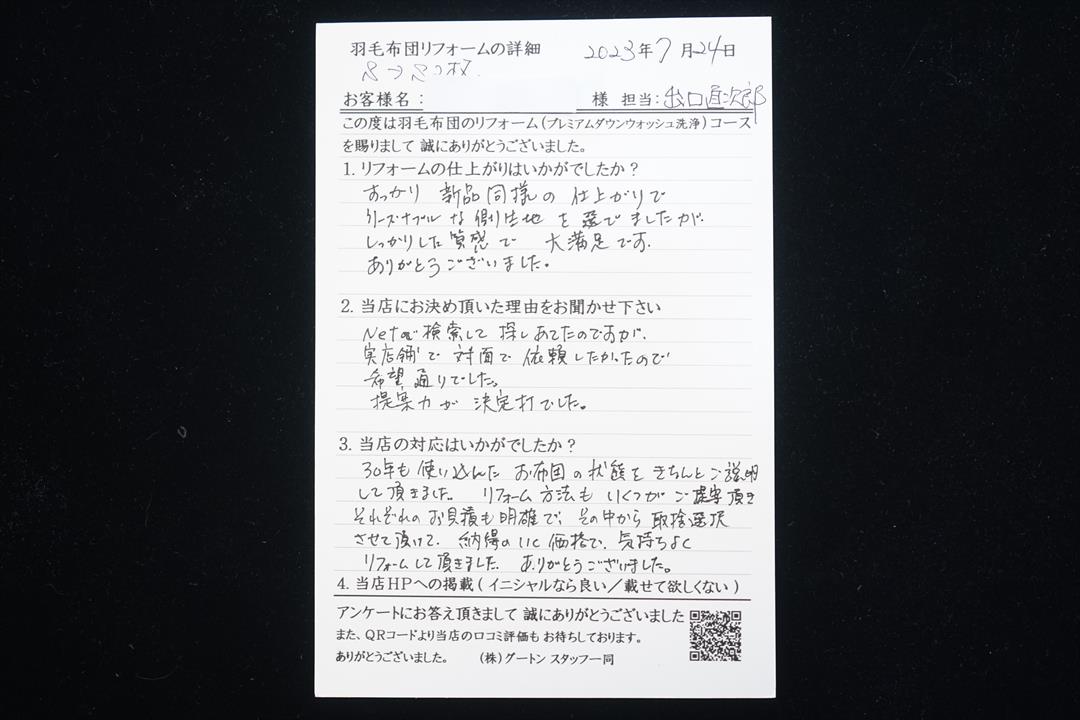 羽毛布団リフォームの詳細 2023年7月24日
S→S 2枚
お客様名: 様 担当:出口直次郎
この度は羽毛布団のリフォーム(プレミアムダウンウォッシュ洗浄)コース
を賜りまして 誠にありがとうございました。
1. リフォームの仕上がりはいかがでしたか?
すっかり 新品同様の 仕上がりで
リーズナブルな側生地を選でましたが、
しっかりした質感で 大満足です。
ありがとうございました。
2. 当店にお決め頂いた理由をお聞かせ下さい
Netで検索して探しあてたのですが、
実店舗で 対面で 依頼したかったので
希望通りでした。
提案力が 決定打でした。
3. 当店の対応はいかがでしたか?
30年も使い込んだ お布団の状態をきちんとご説明
して頂きました。 リフォーム方法も いくつかご提案頂き
それぞれのお見積も明確で、その中から 取捨選択
させて頂けて、納得のいく価格で、気持ちよく
リフォームして頂きました。 ありがとうございました。
4. 当店HPへの掲載(イニシャルなら良い/載せて欲しくない)
アンケートにお答え頂きまして 誠にありがとうございました
また、QRコードより当店の口コミ評価も お待ちしております。
ありがとうございました。 (株)グートン スタッフ一同